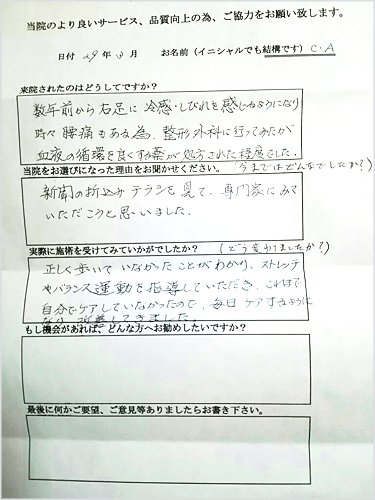 当院のより良いサービス、品質向上の為、ご協力をお願い致します。
日付 29年3月 お名前(イニシャルでも結構です) C.A
来院されたのはどうしてですか?
数年前から右足に冷感・しびれを感じるようになり
時々腰痛もある為、整形外科に行ってみたが
血液の循環を良くする薬が処方された程度でした。
当院をお選びになった理由をお聞かせください。(今まではどんなでしたか?)
新聞の折込みチラシを見て、専門家にみて
いただこうと思いました。
実際に施術を受けてみていかがでしたか?(どう変わりましたか?)
正しく歩いていなかったことがわかり、ストレッチ
やバランス運動を指導していただき、これまで
自分でケアしていなかったので、毎日ケアするように
なり改善してきました。
もし機会があれば、どんな方へお勧めしたいですか?
最後に何かご要望、ご意見等ありましたらお書き下さい。